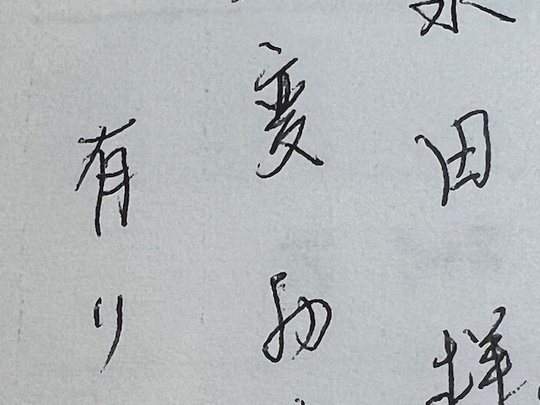 田様
変わ
有り